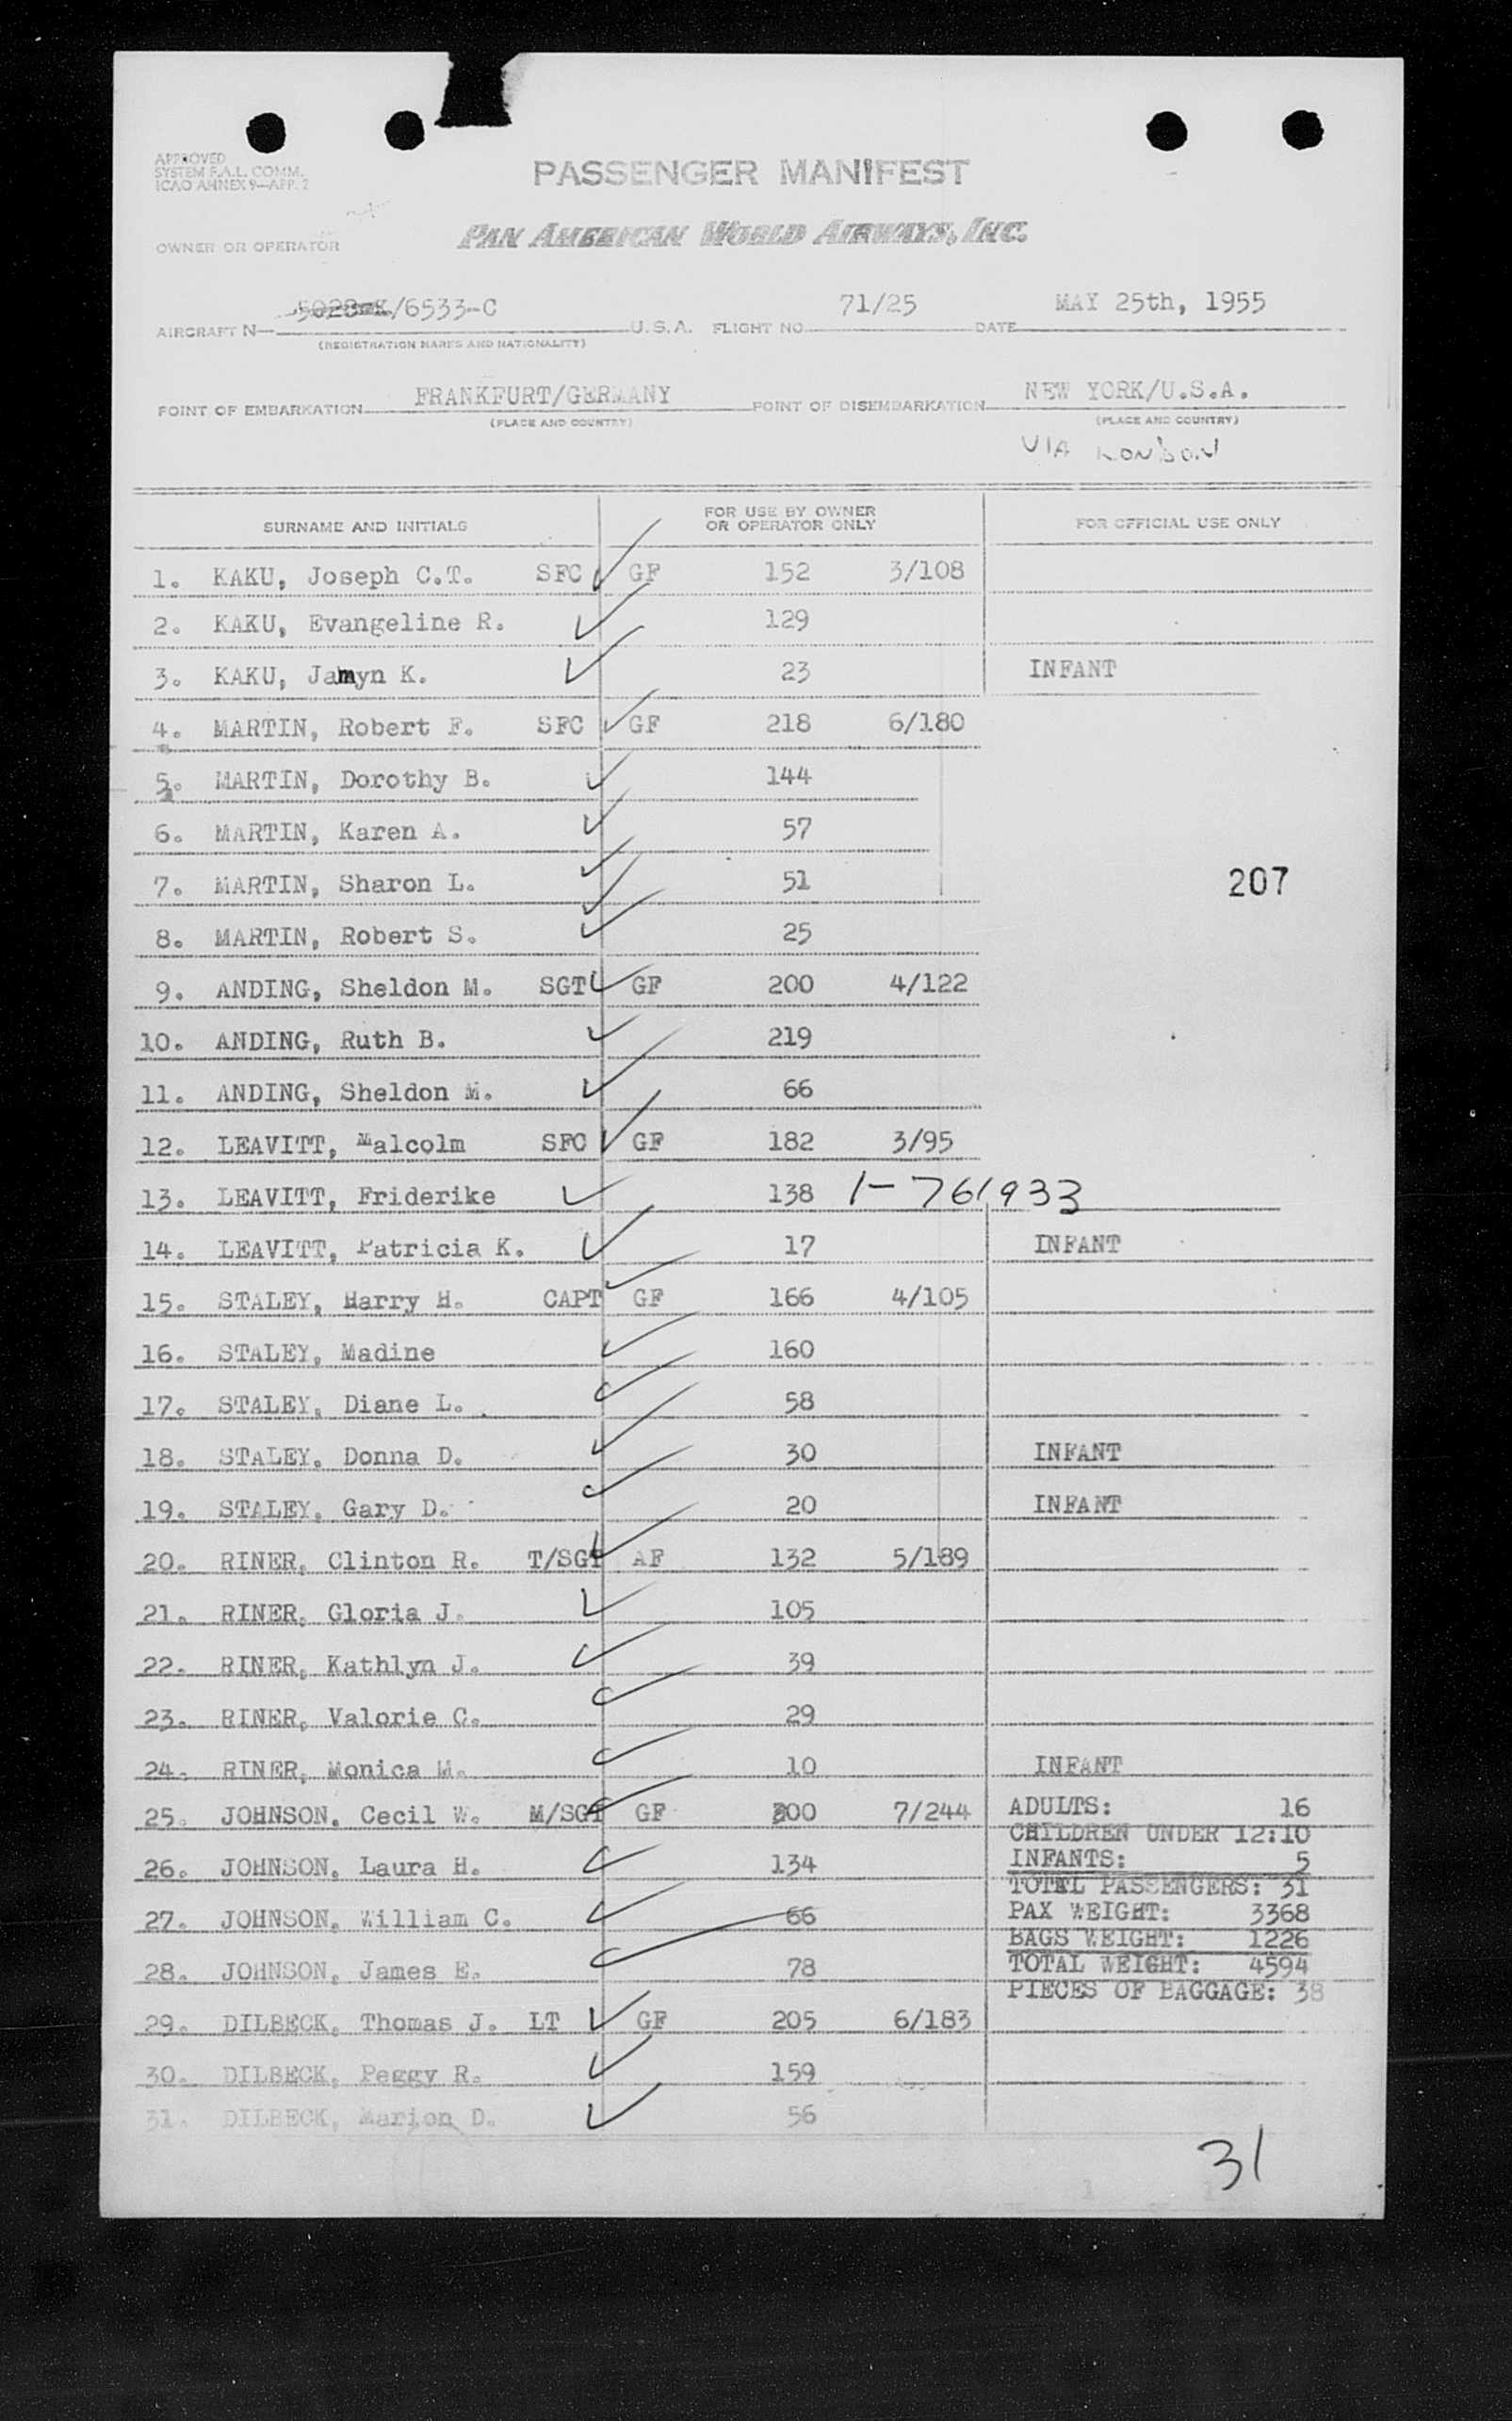 APPROVED
SYSTEM F.A.L. COMM.
ICAO ANNEX 9—APP. 2
PASSENGER MANIFEST
OWNER OR OPERATOR PAN AMERICAN WORLD AIRWAYS, INC.
AIRCRAFT N— /6533-C U.S.A. FLIGHT NO. 71/25 DATE MAY 25th, 1955
(REGISTRATION MARKS AND NATIONALITY)
POINT OF EMBARKATION FRANKFURT/GERMANY POINT OF DISEMBARKATION NEW YORK/U.S.A.
(PLACE AND COUNTRY) (PLACE AND COUNTRY)
VIA LONDON
SURNAME AND INITIALS FOR USE BY OWNER OR OPERATOR ONLY FOR OFFICIAL USE ONLY
1. KAKU, Joseph C.T. SFC GF 152 3/108
2. KAKU, Evangeline R. 129
3. KAKU, Jamyn K. 23 INFANT
4. MARTIN, Robert F. SFC GF 218 6/180
5. MARTIN, Dorothy B. 144
6. MARTIN, Karen A. 57
7. MARTIN, Sharon L. 51
207
8. MARTIN, Robert S. 25
9. ANDING, Sheldon M. SGT GF 200 4/122
10. ANDING, Ruth B. 219
11. ANDING, Sheldon M. 66
12. LEAVITT, Malcolm SFC GF 182 3/95
13. LEAVITT, Friderike 138 1-761933
14. LEAVITT, Patricia K. 17 INFANT
15. STALEY, Harry H. CAPT GF 166 4/105
16. STALEY, Madine 160
17. STALEY, Diane L. 58
18. STALEY, Donna D. 30 INFANT
19. STALEY, Gary D. 20 INFANT
20. RINER, Clinton R. T/SGT AF 132 5/189
21. RINER, Gloria J. 105
22. RINER, Kathlyn J. 39
23. RINER, Valorie C. 29
24. RINER, Monica M. 10 INFANT
25. JOHNSON, Cecil W. M/SGT GF 200 7/244
26. JOHNSON, Laura H. 134
27. JOHNSON, William C. 66
28. JOHNSON, James E. 78
29. DILBECK, Thomas J. LT GF 205 6/183
30. DILBECK, Peggy R. 159
31. DILBECK, Marion D. 56
ADULTS: 16
CHILDREN UNDER 12: 10
INFANTS: 5
TOTAL PASSENGERS: 31
PAX WEIGHT: 3368
BAGS WEIGHT: 1226
TOTAL WEIGHT: 4594
PIECES OF BAGGAGE: 38
31